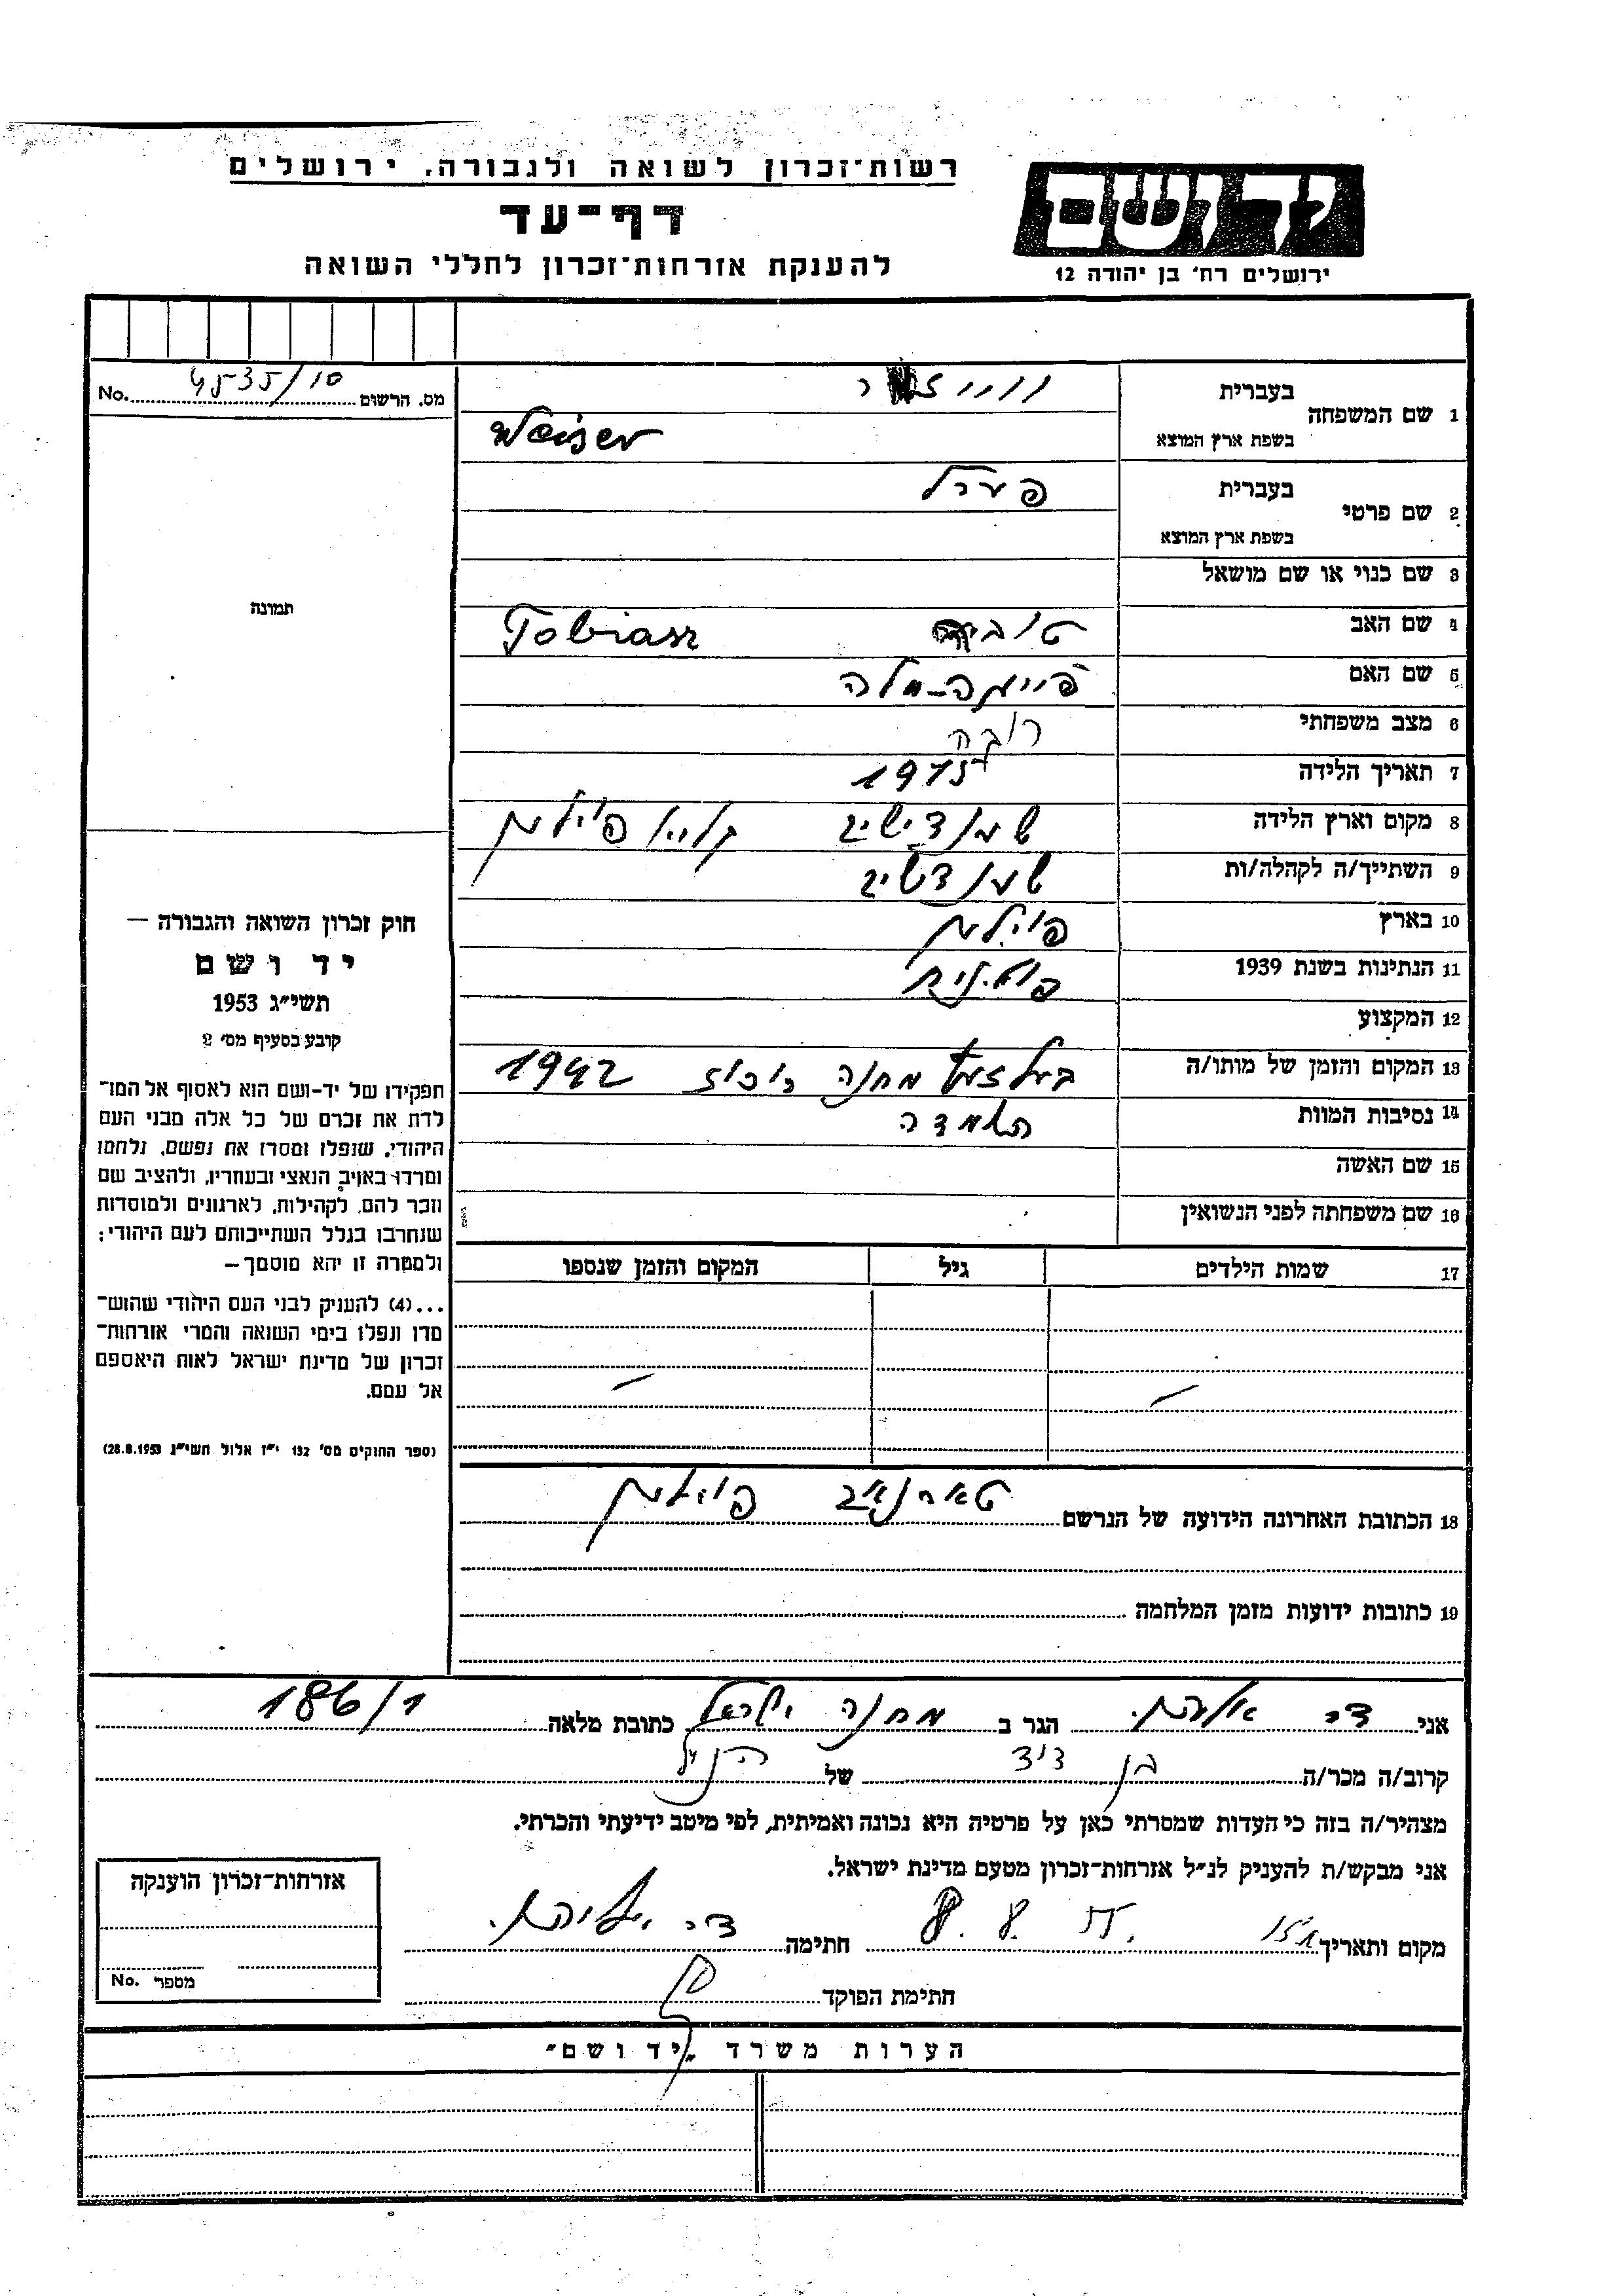 רשות־זכרון לשואה ולגבורה. ירושלים
דף־עד
להענקת אזרחות־זכרון לחללי השואה
יד ושם
ירושלים רח׳ בן יהודה 12
מס. הרשום 4535/10 No.
1 שם המשפחה
בעברית
בשפת ארץ המוצא Weiser
2 שם פרטי
בעברית פערל
בשפת ארץ המוצא
3 שם כנוי או שם מושאל
4 שם האב Tobiasz
5 שם האם
6 מצב משפחתי רובה
7 תאריך הלידה 1915
8 מקום וארץ הלידה פוילען
9 השתייך/ה לקהלה/ות
10 בארץ פוילען
11 הנתינות בשנת 1939
12 המקצוע
13 המקום והזמן של מותו/ה בעלזעץ מחנה ריכוז 1942
14 נסיבות המוות השמדה
15 שם האשה
16 שם משפחתה לפני הנשואין
17 שמות הילדים גיל המקום והזמן שנספו
18 הכתובת האחרונה הידועה של הנרשם פוילען
19 כתובות ידועות מזמן המלחמה
תמונה
חוק זכרון השואה והגבורה —
יד ושם
תשי״ג 1953
קובע בסעיף מס׳ 2
תפקידו של יד-ושם הוא לאסוף אל המו־
לדת את זכרם של כל אלה מבני העם
היהודי, שנפלו ומסרו את נפשם, נלחמו
ומרדו באויב הנאצי ובעוזריו, ולהציב שם
וזכר להם, לקהילות, לארגונים ולמוסדות
שנחרבו בגלל השתייכותם לעם היהודי;
ולמטרה זו יהא מוסמך —
...(4) להעניק לבני העם היהודי שהוש־
מדו ונפלו בימי השואה והמרי אזרחות־
זכרון של מדינת ישראל לאות היאספם
אל עמם.
(ספר החוקים מס׳ 132 י״ז אלול תשי״ג 28.8.1953)
אני הגר ב מחנה ישראל כתובת מלאה 186/1
קרוב/ה מכר/ה בן דוד של הנ״ל
מצהיר/ה בזה כי העדות שמסרתי כאן על פרטיה היא נכונה ואמיתית, לפי מיטב ידיעתי והכרתי.
אני מבקש/ת להעניק לנ״ל אזרחות־זכרון מטעם מדינת ישראל.
מקום ותאריך חתימה
חתימת הפוקד
אזרחות־זכרון הוענקה
מספר No.
הערות משרד „יד ושם״